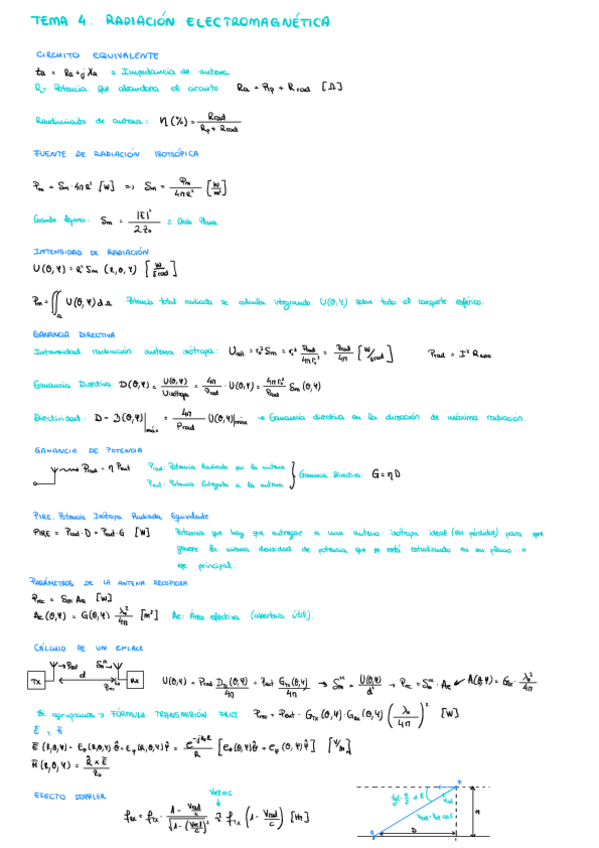 TEMA 4. RADIACIÓN ELECTROMAGNÉTICA
CIRCUITO EQUIVALENTE
Za = Ra + j Xa = Impedancia de antena
R = Potencia que abandona el circuito Ra = Rp + Rrad [Ω]
Rendimiento de antena: η (%) = Rrad / (Rp + Rrad)
FUENTE DE RADIACIÓN ISOTRÓPICA
Pm = Sm · 4πR² [W] => Sm = Pm / 4πR² [W/m²]
Cuando lejano: Sm = |E|² / 2Z₀ = Onda Plana
INTENSIDAD DE RADIACIÓN
U(θ,φ) = R² Sm (R,θ,φ) [W/srad]
Pm = ∬ U(θ,φ) dΩ Potencia total radiada se calcula integrando U(θ,φ) sobre todo el casquete esférico.
GANANCIA DIRECTIVA
Intensidad radiación antena isótropa: = Prad / 4π [W/srad] Prad = I² Rrad
Ganancia Directiva: D(θ,φ) = U(θ,φ) / Uisótropa = 4π / Prad · U(θ,φ) = Sm (θ,φ)
Directividad: D = D(θ,φ)|máx = 4π / Prad U(θ,φ)|máx → Ganancia directiva en la dirección de máxima radiación.
GANANCIA DE POTENCIA
Prad = η Pent Prad: Potencia Radiada por la antena
Pent: Potencia Entregada a la antena } Ganancia Directiva: G = ηD
PIRE. Potencia Isótropa Radiada Equivalente
PIRE = Prad · D = Pent · G [W] Potencia que hay que entregar a una antena isótropa ideal (sin pérdidas) para que
genere la misma densidad de potencia que se está estudiando en su plano o
eje principal.
PARÁMETROS DE LA ANTENA RECEPTORA
Prec = Sm Ae [W]
Ae (θ,φ) = G(θ,φ) λ₀² / 4π [m²] Ae: Área efectiva (abertura útil).
CÁLCULO DE UN ENLACE
TX d RX U(θ,φ) = Prad = Pent
Si agrupamos → FÓRMULA TRANSMISIÓN FRIIS Prec = Pent · GTX (θ,φ) · GRX (θ,φ) (λ₀ / 4πd)² [W]
E, H
E (R,θ,φ) = Eθ (R,θ,φ) θ̂ + Eφ (R,θ,φ) φ̂ = e^(-jk₀R) / R [eθ (θ,φ) θ̂ + eφ (θ,φ) φ̂] [V/m]
H (R,θ,φ) = R̂ × E / Z₀
EFECTO DOPPLER
fRX = fTX · fTX (1 - Vrad / c) [Hz]
D
H